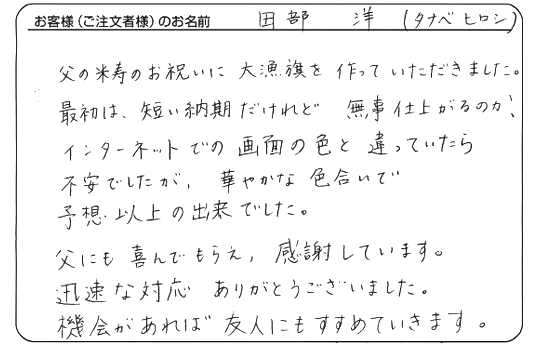 お客様(ご注文者様)のお名前 田部 洋 (タナベ ヒロシ)
父の米寿のお祝いに 大漁旗を 作っていただきました。
最初は、短い納期だけれど 無事仕上がるのか、
インターネットでの画面の色と 違っていたら
不安でしたが、華やかな色合いで
予想以上の出来でした。
父にも 喜んでもらえ、感謝しています。
迅速な対応 ありがとうございました。
機会があれば 友人にもすすめていきます。